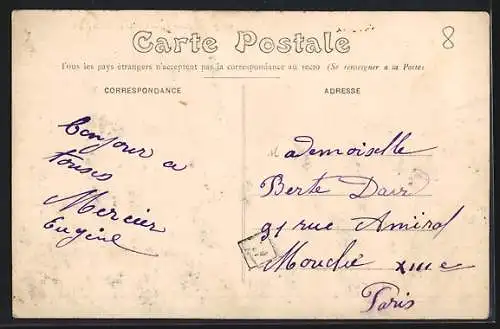 8
Carte Postale
Tous les pays étrangers n'acceptent pas la correspondance au recto (Se renseigner à la Poste)
CORRESPONDANCE
ADRESSE
Bonjour a
toutes
Mercier
Eugène
Mademoiselle
Berte
91 rue Amiral
Mouchez XIIIe
Paris